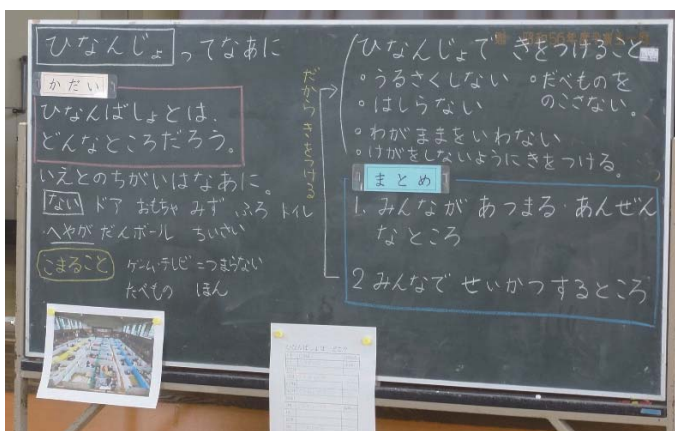 ひなんじょ ってなあに
かだい
ひなんばしょとは、
どんなところだろう。
いえとのちがいはなあに。
ない ドア おもちゃ みず ふろ トイレ
・へやが だんボール ちいさい
こまること ゲーム・テレビ=つまらない
たべもの ほん
だから きをつける
ひなんじょで きをつけること
○うるさくしない ○たべものを
のこさない。
○はしらない
○わがままをいわない
○けがをしないようにきをつける。
まとめ
1. みんなが あつまる・あんぜん
なところ
2 みんなで せいかつするところ